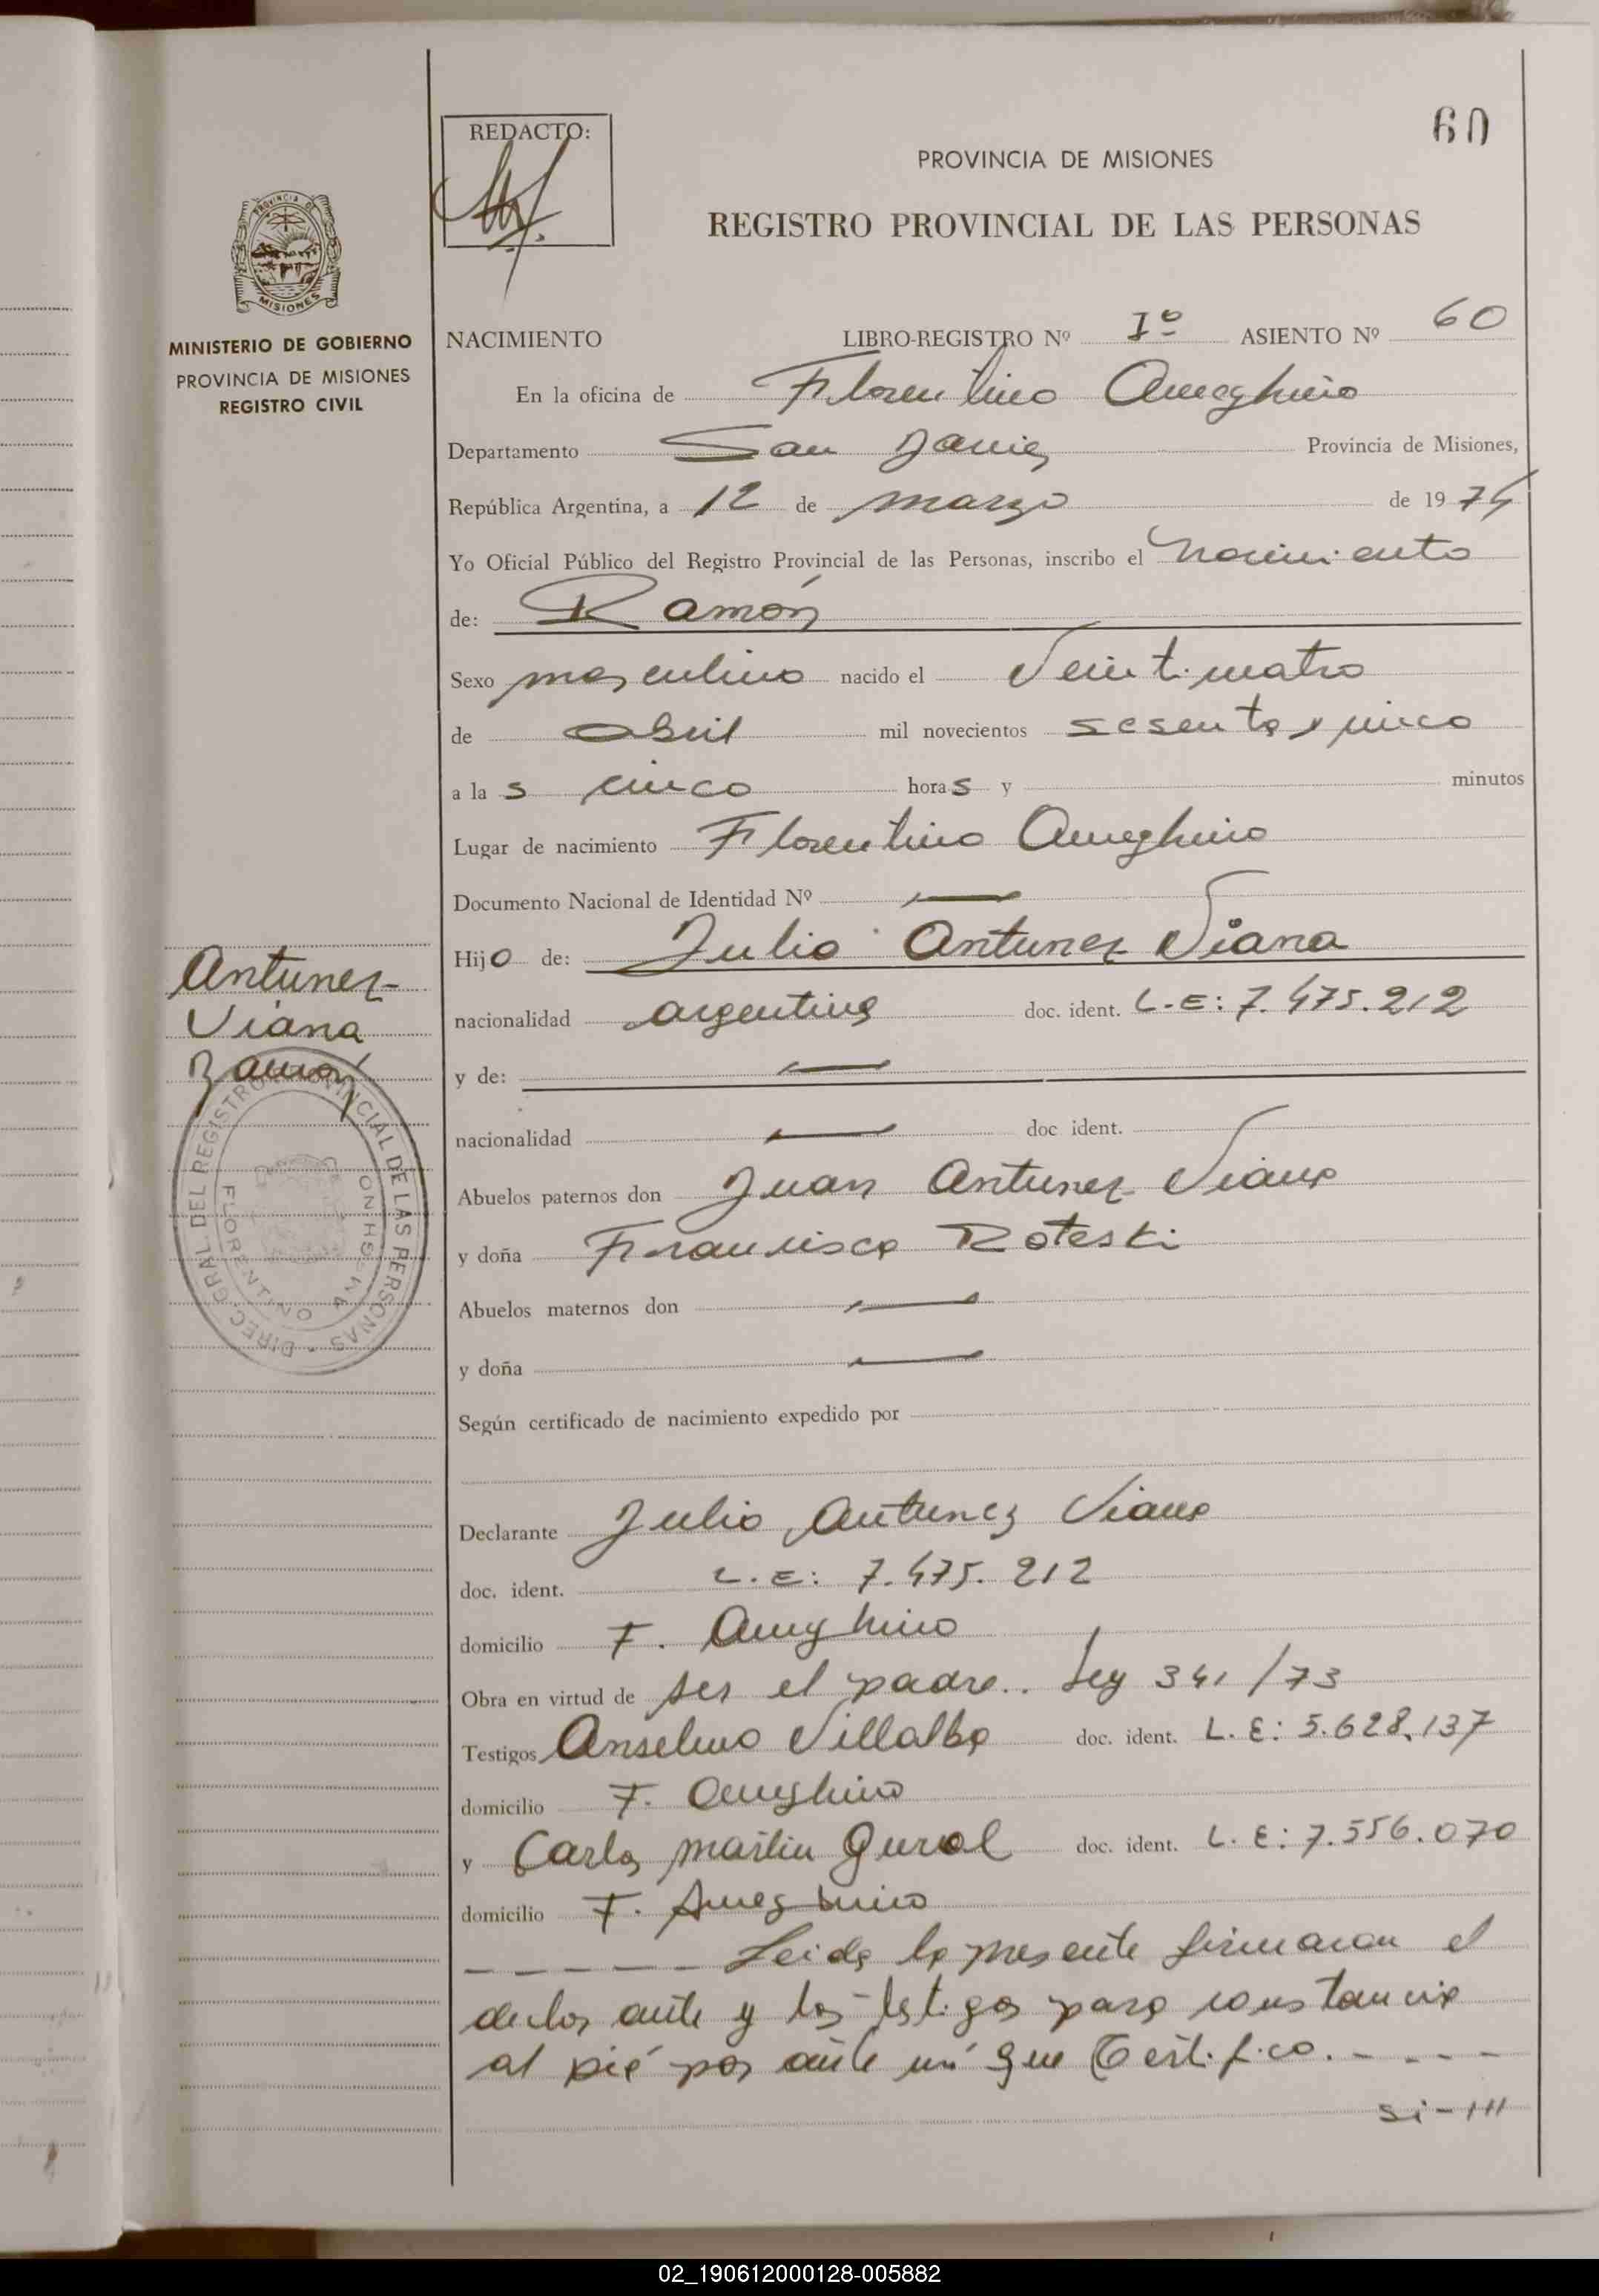 60
REDACTO:
PROVINCIA DE MISIONES
REGISTRO PROVINCIAL DE LAS PERSONAS
PROVINCIA DE
MISIONES
MINISTERIO DE GOBIERNO
PROVINCIA DE MISIONES
REGISTRO CIVIL
NACIMIENTO LIBRO-REGISTRO Nº Iº ASIENTO Nº 60
En la oficina de Florentino Ameghino
Departamento San Javier Provincia de Misiones,
República Argentina, a 12 de marzo de 1974
Yo Oficial Público del Registro Provincial de las Personas, inscribo el nacimiento
de: Ramón
Sexo masculino nacido el Veinticuatro
de abril mil novecientos sesenta y cinco
a las cinco horas y minutos
Lugar de nacimiento Florentino Ameghino
Documento Nacional de Identidad Nº —
Hijo de: Julio Antunez Viana
nacionalidad argentina doc. ident. L.E: 7.475.212
y de: —
nacionalidad — doc ident.
Abuelos paternos don Juan Antunez Viana
y doña Francisca Roteski
Abuelos maternos don —
y doña —
Según certificado de nacimiento expedido por
Declarante Julio Antunez Viana
doc. ident. L.E: 7.475.212
domicilio F. Ameghino
Obra en virtud de ser el padre.. Ley 341/73
Testigos Anselmo Villalba doc. ident. L.E: 5.628.137
domicilio F. Ameghino
y Carlos Martin Gural doc. ident. L.E: 7.556.070
domicilio F. Ameghino
----- Leida la presente firmaron el
declarante y los testigos para constancia
al pié por ante mí que Certifico.----
si-///
Antunez
Viana
Ramón
DIREC. GRAL DEL REGISTRO PROVINCIAL DE LAS PERSONAS
FLORENTINO AMEGHINO
02_190612000128-005882